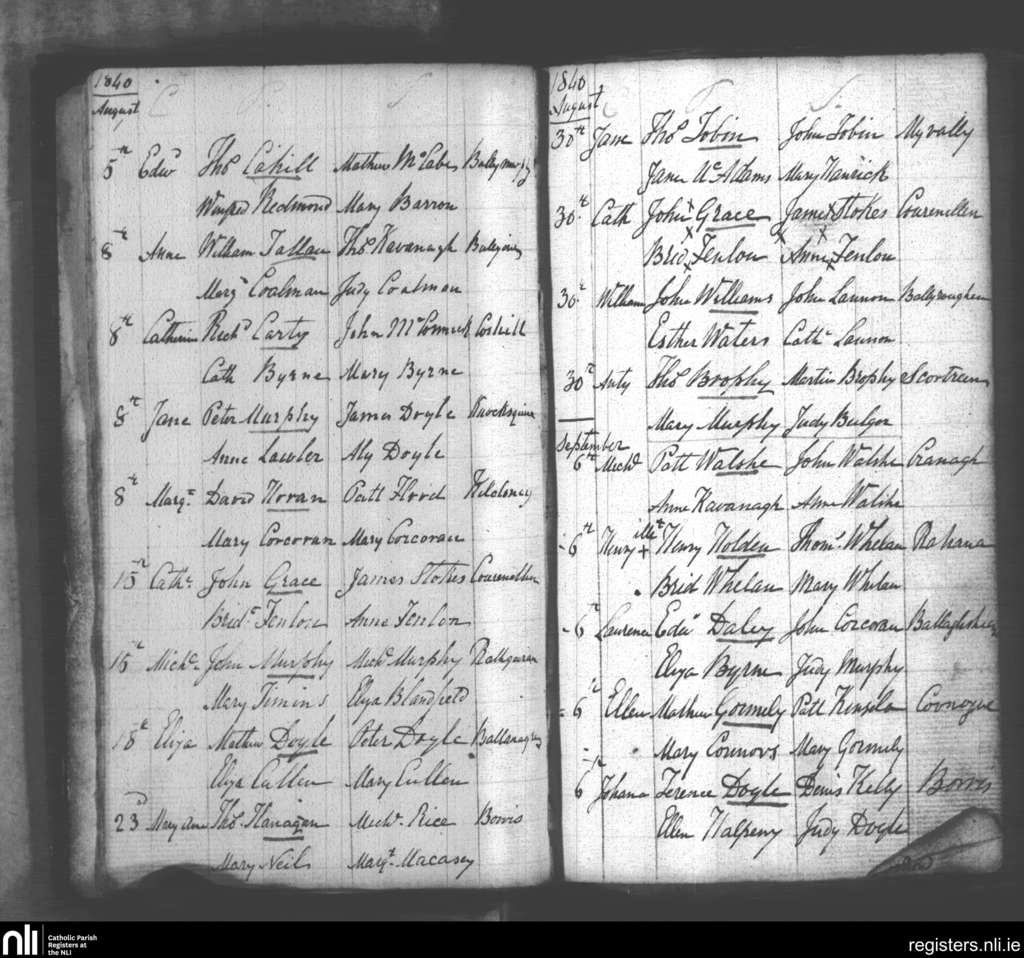 1840
August
C P S
5th Edwd Thos Cahill Mathew McCabe
Winifred Redmond Mary Barron
8th Anne William Tallan Thos Kavanagh
Margt Coalman Judy Coalman
8th Catherine Richd Carty John McCormick Coshill
Cath Byrne Mary Byrne
8th Jane Peter Murphy James Doyle Knocksquire
Anne Lawler Aly Doyle
8th Margt David Horan Patt Flood Kildoney
Mary Corcoran Mary Corcoran
15th Cathe John Grace James Stokes Courenellen
Bridt Fenlon Anne Fenlon
15th Michl John Murphy Michl Murphy Rathgeran
Mary Timins Eliza Blandfield
18th Eliza Mathew Doyle Peter Doyle
Eliza Cullen Mary Cullen
23d Mary Ane Thos Flanagan Michl Rice Borris
Mary Neil Margt Macasey
1840
August
C P S
30th Jane Thos Tobin John Tobin Myvally
Jane McAdams Mary Hanrick
30th Cath John Grace James Stokes Courenellen
Brid Fenlon Anne Fenlon
30th William John Williams John Lannon Ballyroughen
Esther Waters Cath Lannon
30th Anty Thos Brophy Martin Brophy Scortreen
Mary Murphy Judy Bulger
September
6th Michl Patt Walshe John Walshe Cranagh
Anne Kavanagh Anne Walshe
6th Henry illt + Henry Nolden Thoms Whelan Rahana
Brid Whelan Mary Whelan
6th Laurence Edw Daley John Corcoran
Eliza Byrne Judy Murphy
6th Ellen Mathew Gormely Patt Kinsela Coonogue
Mary Connors Mary Gormely
6th Johana Terence Doyle Denis Kelly Borris
Ellen Halpeny Judy Doyle
nli Catholic Parish
Registers at
the NLI
registers.nli.ie